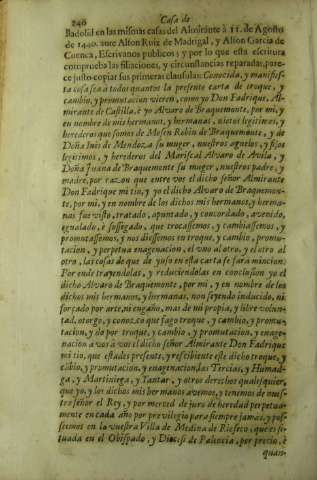 240 Casa de
lladolid en las mismas casas del Almirante à 11. de Agosto
de 1440. ante Alfon Ruiz de Madrigal, y Alfon Garcia de
Cuenca, Escrivanos publicos; y por lo que esta escritura
comprueba las filiaciones, y circunstancias reparadas, pare-
ce justo copiar sus primeras clausulas: Conocida, y manifies-
ta cosa sea à todos quantos la presente carta de troque, y
cambio, y promutacion vieren, como yo Don Fadrique, Al-
mirante de Castilla, è yo Alvaro de Braquemonte, por mi, y
en nombre de mis hermanos, y hermanas, nietos legitimos, y
herederos que somos de Mosen Robin de Braquemonte, y de
Doña Inès de Mendoza su muger, nuestros aguelos, y fijos
legitimos, y herederos del Mariscal Alvaro de Avila, y
Doña Juana de Braquemonte su muger, nuestros padre, y
madre, por razon que entre vos el dicho señor Almirante
Don Fadrique mi tio, y yo el dicho Alvaro de Braquemon-
te, por mi, y en nombre de los dichos mis hermanos, y herma-
nas fue visto, tratado, apuntado, y concordado, avenido,
egualado, è sossegado, que trocassemos, y cambiassemos, y
promutassemos, y nos diessemos en troque, y cambio, promu-
tacion, y perpetua enagenacion, el uno al otro, y el otro al
otro, las cosas de que de yuso en esta carta se farà mincion:
Por ende trayendolas, y reduciendolas en conclusion yo el
dicho Alvaro de Braquemonte, por mi, y en nombre de los
dichos mis hermanos, y hermanas, non seyendo inducido, ni
forzado por arte, ni engaño, mas de mi propia, y libre volun-
tad, otorgo, y conozco que fago troque, y cambio, y promu-
tacion, y do por troque, y cambio, y promutacion, y enage-
nacion à vos à vos el dicho señor Almirante Don Fadrique
mi tio, que estades presente, y rescibiente este dicho troque, y
cãbio, y promutacion, y enagenacion, las Tercias, y Humad-
ga, y Martiniega, y Yantar, y otros derechos qualesquier,
que yo, y los dichos mis hermanos avemos, y tenemos de nues-
tro señor el Rey, y por merced de juro de heredad perpetua-
mente en cada año por previlegio para siempre jamas, y pos-
seemos en la vuestra Villa de Medina de Rioseco, que es si-
tuada en el Obispado, y Diocesi de Palencia, por precio, è
quan-